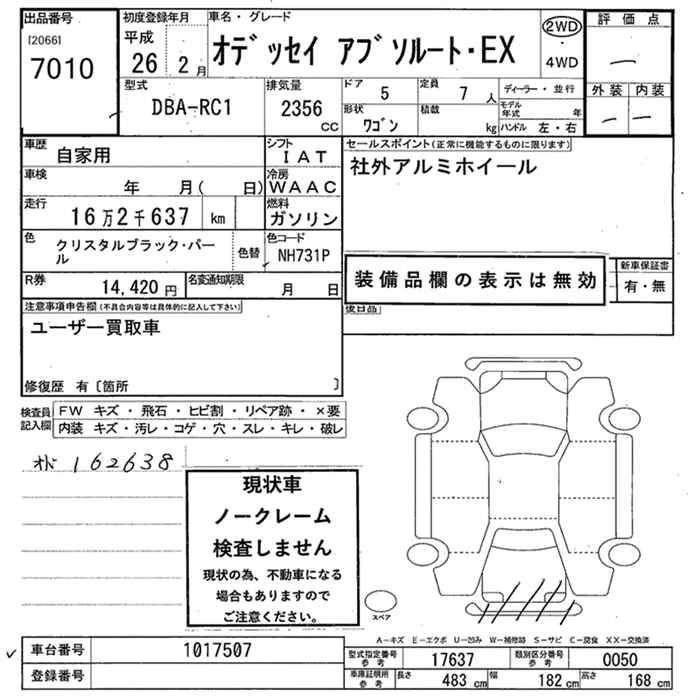 出品番号
[2066]
7010
初度登録年月
平成
26 2 月
車名・グレード
オデッセイ アブソルート・EX
2WD
・
4WD
評価点
―
外装 内装
― ―
型式
DBA-RC1
排気量
2356
CC
ドア
5
定員
7 人
形状
ワゴン
積載
kg
ディーラー・並行
モデル年式 年
ハンドル 左・右
車歴
自家用
シフト
IAT
車検
年 月( 日)
冷房
WAAC
走行
16万2千637 km
燃料
ガソリン
色
クリスタルブラック・パール
色替
色コード
NH731P
R券
14,420 円
名変通知期限
月 日
セールスポイント(正常に機能するものに限ります)
社外アルミホイール
装備品欄の表示は無効
新車保証書
有・無
後日品
注意事項申告欄(不具合内容等は具体的に記入して下さい)
ユーザー買取車
修復歴 有〔箇所 〕
検査員記入欄
FW キズ・飛石・ヒビ割・リペア跡・×要
内装 キズ・汚レ・コゲ・穴・スレ・キレ・破レ
162638
現状車
ノークレーム
検査しません
現状の為、不動車になる
場合もありますので
ご注意ください。
スペア
A―キズ E―エクボ U―凹み W―補修跡 S―サビ C―腐食 XX―交換済
車台番号
1017507
登録番号
型式指定番号
参考
17637
類別区分番号
参考
0050
車庫証明所
参考
長さ
483 cm
幅
182 cm
高さ
168 cm